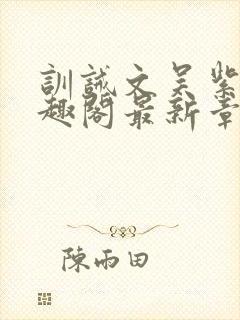 訓誡文吴紫
趣閣最新章
陳雨田